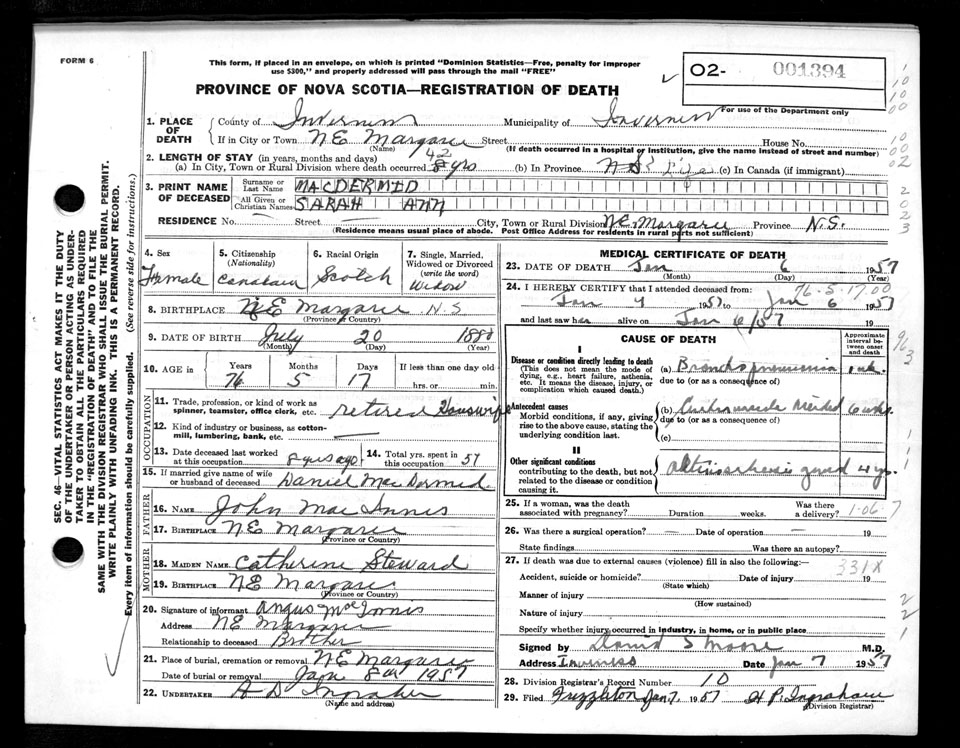 FORM 6
This form, if placed in an envelope, on which is printed "Dominion Statistics—Free, penalty for improper
use $300," and properly addressed will pass through the mail "FREE"
O2- 001394
For use of the Department only
PROVINCE OF NOVA SCOTIA—REGISTRATION OF DEATH
1. PLACE OF DEATH
County of Inverness Municipality of Inverness
If in City or Town N E Margaree Street House No.
(Name) (If death occurred in a hospital or institution, give the name instead of street and number)
2. LENGTH OF STAY (in years, months and days)
(a) In City, Town or Rural Division where death occurred 42 8 yrs (b) In Province (c) In Canada (if immigrant)
3. PRINT NAME OF DECEASED
Surname or Last Name MACDERMID
All Given or Christian Names SARAH ANN
RESIDENCE No. — Street — City, Town or Rural Division N.E. Margaree Province N.S.
(Residence means usual place of abode. Post Office Address for residents in rural parts not sufficient)
4. Sex Female
5. Citizenship (Nationality) Canadain
6. Racial Origin Scotch
7. Single, Married, Widowed or Divorced (write the word) Widow
8. BIRTHPLACE N E Margaree N.S
(Province or Country)
9. DATE OF BIRTH July 20 1880
(Month) (Day) (Year)
10. AGE in Years 76 Months 5 Days 17 If less than one day old hrs. or min.
OCCUPATION
11. Trade, profession, or kind of work as spinner, teamster, office clerk, etc. retired Housewife
12. Kind of industry or business, as cotton-mill, lumbering, bank, etc. —
13. Date deceased last worked at this occupation 8 yrs ago
14. Total yrs. spent in this occupation 57
15. If married give name of wife or husband of deceased Daniel Mac Dermid
FATHER
16. Name John Mac Innis
17. Birthplace N E Margaree
(Province or Country)
MOTHER
18. MAIDEN NAME Catherine Steward
19. BIRTHPLACE N E Margaree
(Province or Country)
20. Signature of informant Angus MacInnis
Address N E Margaree
Relationship to deceased Brother
21. Place of burial, cremation or removal N E Margaree
Date of burial or removal Jan 8 1957
22. UNDERTAKER A D Ingraham
(Name and address)
MEDICAL CERTIFICATE OF DEATH
23. DATE OF DEATH Jan 6 1957
(Month) (Day) (Year)
24. I HEREBY CERTIFY that I attended deceased from: 76-5-17.00
Jan 4 1957 to Jan 6 1957
and last saw her alive on Jan 6/57 19
CAUSE OF DEATH
Approximate interval between onset and death
I
Disease or condition directly leading to death
(This does not mean the mode of dying, e.g., heart failure, asthenia, etc. It means the disease, injury, or complication which caused death.)
(a) Bronchopneumonia 1 wk.
due to (or as a consequence of)
Antecedent causes
Morbid conditions, if any, giving rise to the above cause, stating the underlying condition last.
(b) 6 wks
due to (or as a consequence of)
(c)
II
Other significant conditions
contributing to the death, but not related to the disease or condition causing it.
4 yrs.
25. If a woman, was the death associated with pregnancy? Duration weeks. Was there a delivery?
1-06-7
26. Was there a surgical operation? — Date of operation — 19
State findings Was there an autopsy?
27. If death was due to external causes (violence) fill in also the following:— 331X
Accident, suicide or homicide? Date of injury 19
(State which)
Manner of injury
(How sustained)
Nature of injury
Specify whether injury occurred in industry, in home, or in public place
Signed by David S Moore M.D.
Address Inverness Date Jan 7 1957
28. Division Registrar's Record Number 10
29. Filed Frizzleton Jan 7, 1957 H P. Ingraham
(Division Registrar)
SEC. 46—VITAL STATISTICS ACT MAKES IT THE DUTY
OF THE UNDERTAKER OR PERSON ACTING AS UNDER-
TAKER TO OBTAIN ALL THE PARTICULARS REQUIRED
IN THE "REGISTRATION OF DEATH" AND TO FILE THE
SAME WITH THE DIVISION REGISTRAR WHO SHALL ISSUE THE BURIAL PERMIT.
WRITE PLAINLY WITH UNFADING INK. THIS IS A PERMANENT RECORD.
Every item of information should be carefully supplied. (See reverse side for instructions.)